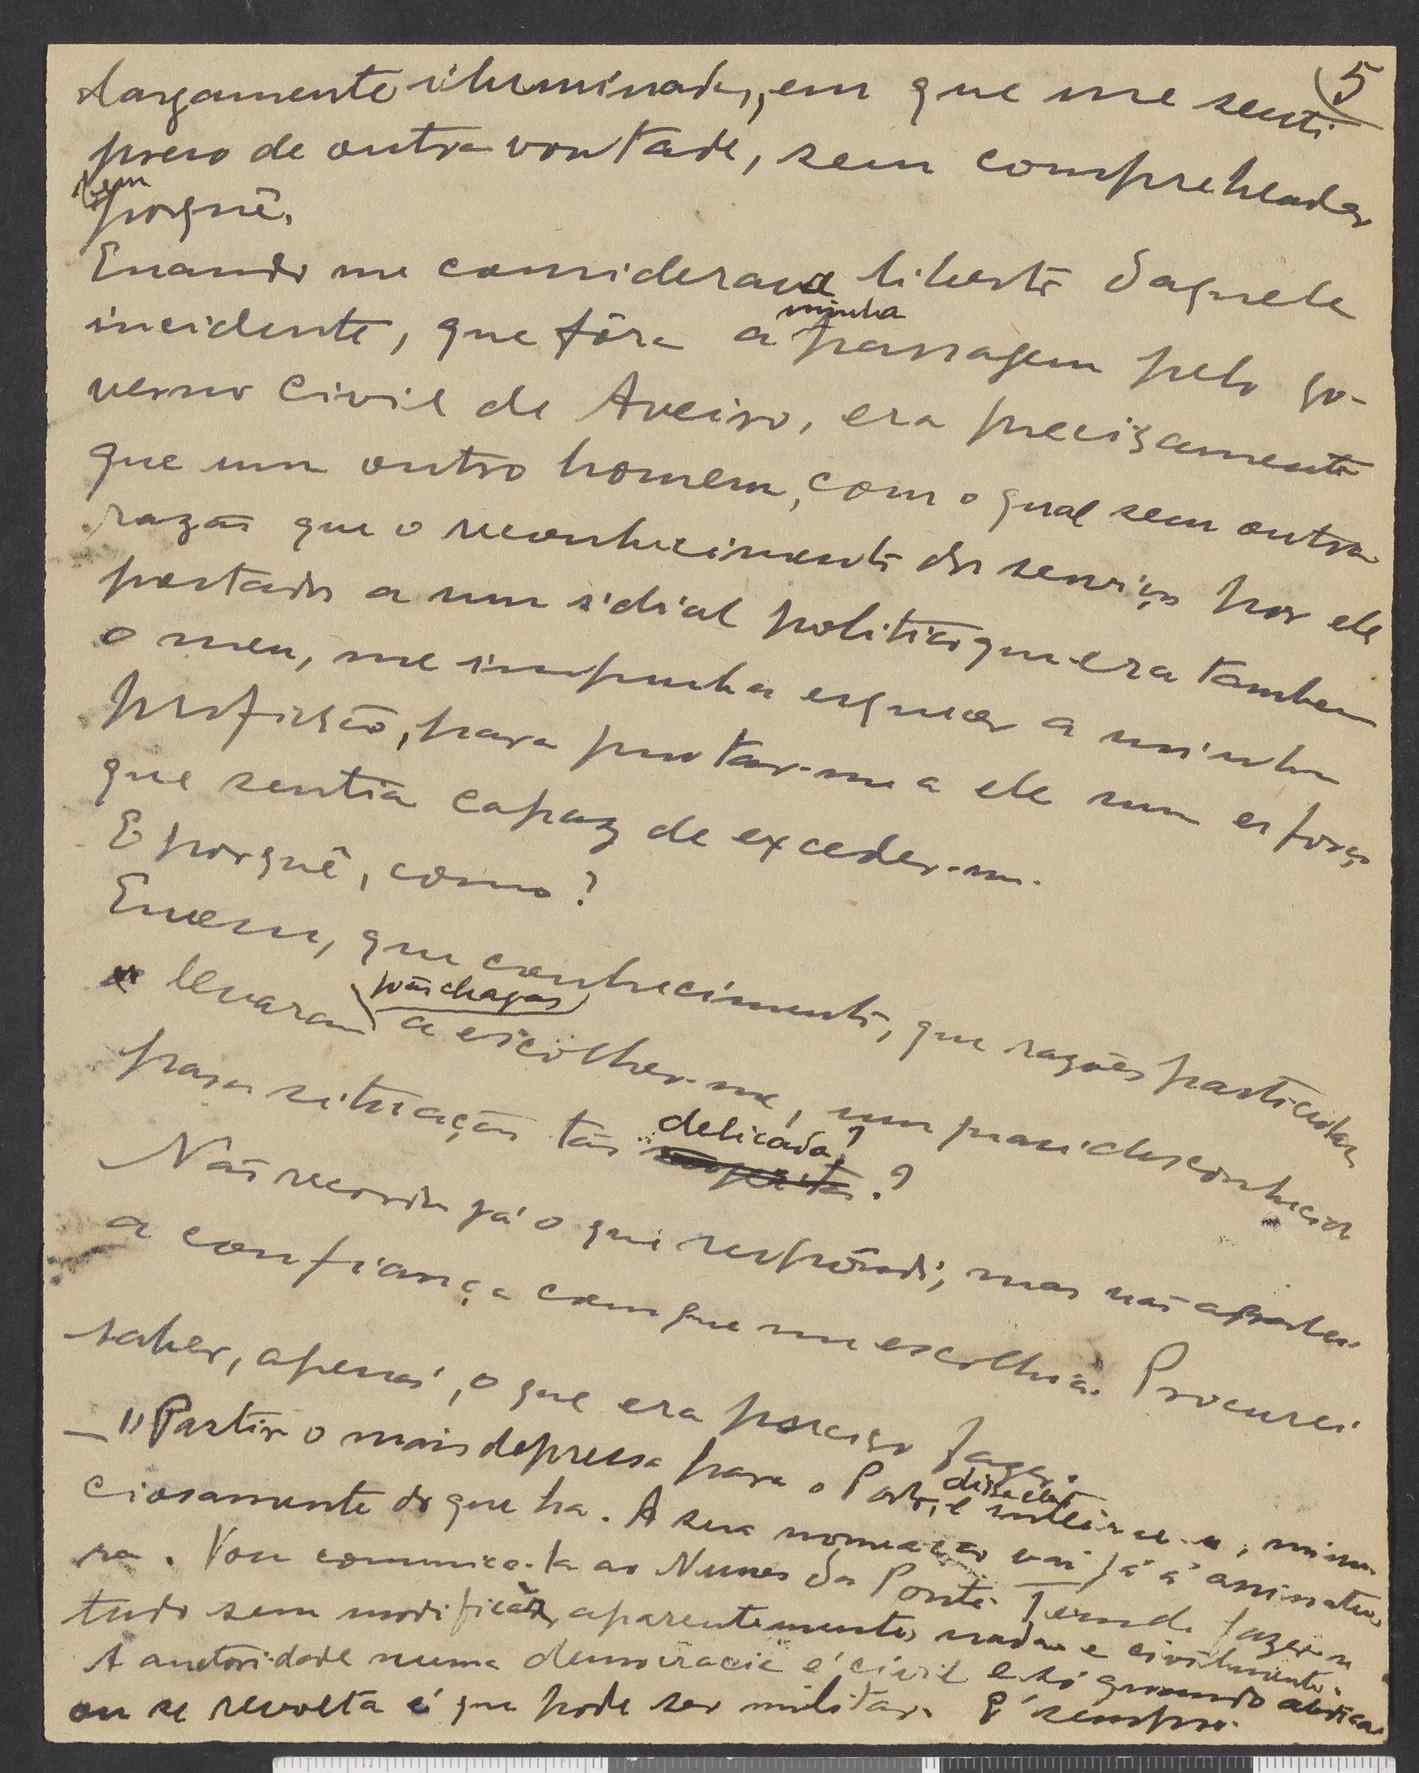 5
largamente iluminada, em que me senti
preso de outra vontade, sem comprehender
nem porquê.
Quando me considerava liberto daquele
incidente, que fôra a minha passagem pelo go-
verno civil de Aveiro, era precizamente
que um outro homem, com o qual sem outra
razão que o reconhecimento dos serviços por ele
prestados a um idial politico que era tambem
o meu, me impunha esquecer a minha
profissão, para prestar-me a ele num esforço
que sentia capaz de exceder-me.
E porquê, como?
Quem, que conhecimento, que razões particulares
levaram João Chagas a escolher-me, um quasi desconhecido
para situação tão delicada?
Não recordo já o que respondi; mas não
a confiança com que me escolhia. Procurei
saber, apenas, o que era preciso fazer.
— "Partir o mais depressa para o Porto, e inteirar-se, minu-
ciosamente do que ha. A sua nomeação vai já á assinatu-
ra. Vou comunica-la ao Nunes da Ponte. Tem de fazer
tudo sem modificar, aparentemente, nada e civilmente.
A auctoridade numa democracia é civil e só quando abdica
ou se revolta é que pode ser militar. E' sempre